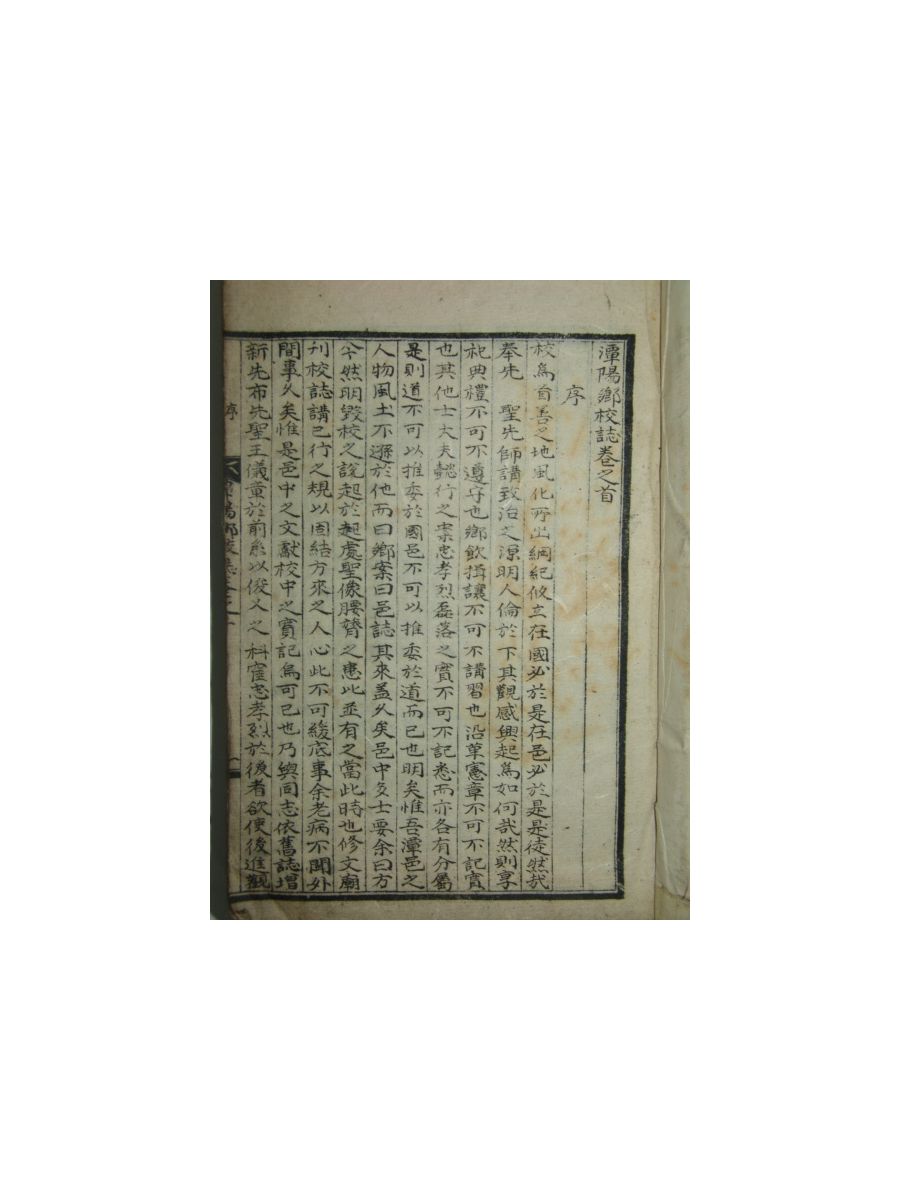 潭陽鄕校誌卷之首
序
校爲首善之地風化所出綱紀攸立在國必於是在邑必於是是徒然哉
奉先　聖先師講致治之源明人倫於下其觀感興起爲如何哉然則享
祀典禮不可不遵守也鄕飮揖讓不可不講習也沿革憲章不可不記實
也其他士大夫懿行之案忠孝烈磊落之實不可不記悉而亦各有分屬
是則道不可以推委於國邑不可以推委於道而已也明矣惟吾潭邑之
人物風土不遜於他而曰鄕案曰邑誌其來盖久矣邑中多士要余曰方
今然明毁校之說起於起處聖像腰膂之患比並有之當此時也修文廟
刊校誌講已行之規以固結方來之人心此不可緩底事余老病不聞外
間事久矣惟是邑中之文獻校中之實記烏可已也乃與同志依舊誌增
新先布先聖王儀章於前系以俊乂之科宦忠孝烈於後者欲使後進觀
序